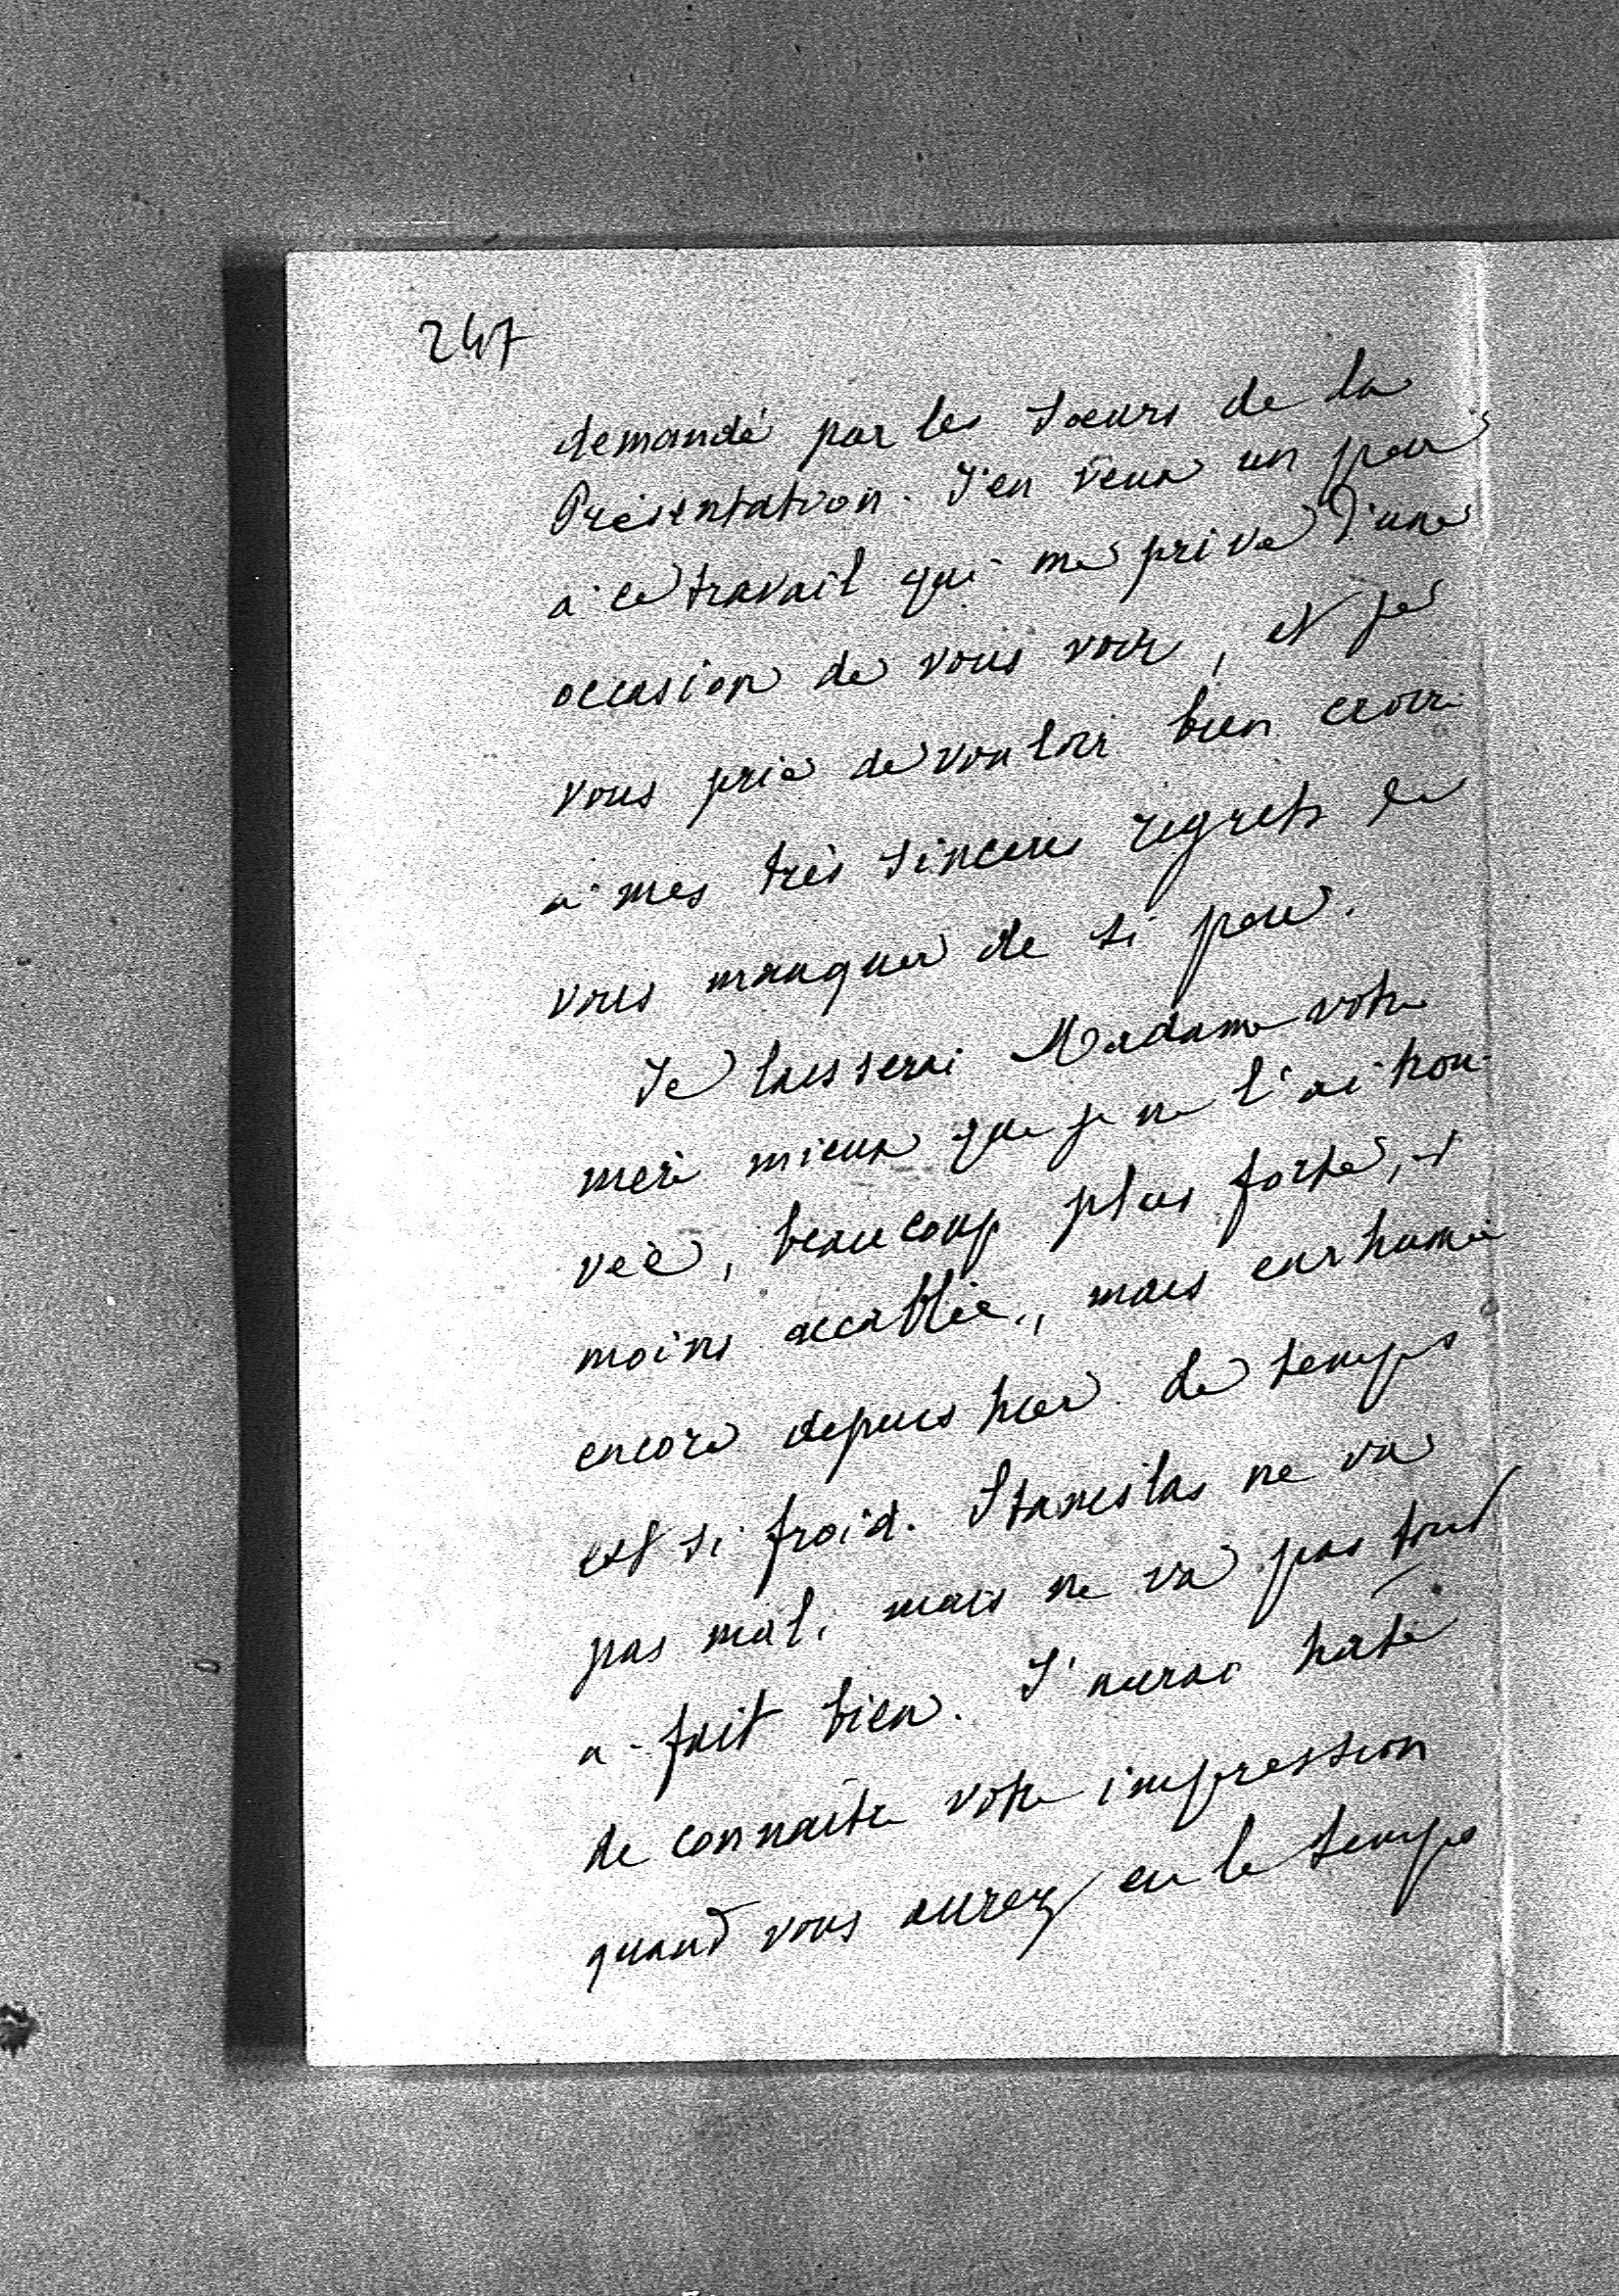 247
demandé par les Soeurs de la
Présentation. J'en veux un peu
à ce travail qui me prive d'une
occasion de vous voir, et je
vous prie de vouloir bien croire
à mes très sincères regrets de
vous manquer de si peu.
Je laisserai Madame votre
mère mieux que je ne l'ai trou-
vée, beaucoup plus forte, et
moins accablée, mais enrhumée
encore depuis hier. Le temps
est si froid. Stanislas ne va
pas mal, mais ne va pas tout
a-fait bien. J'aurai hâte
de connaître votre impression
quand vous aurez eu le temps